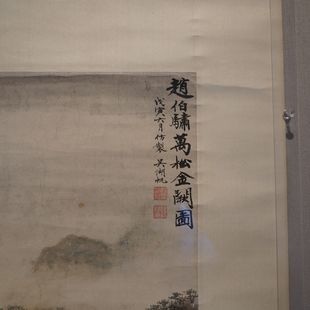 趙伯驌萬松金闕圖
戊寅六月仿製 吳湖帆